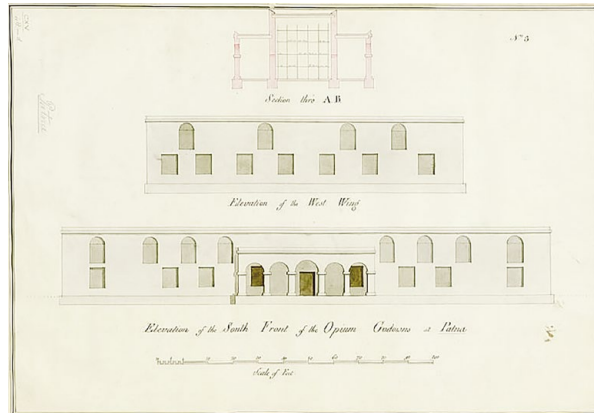 No 5
Patna
Section thro A.B
Elevation of the West Wing
Elevation of the South Front of the Opium Godowns at Patna
10 20 30 40 50 60 70 80 90 100
Scale of Feet